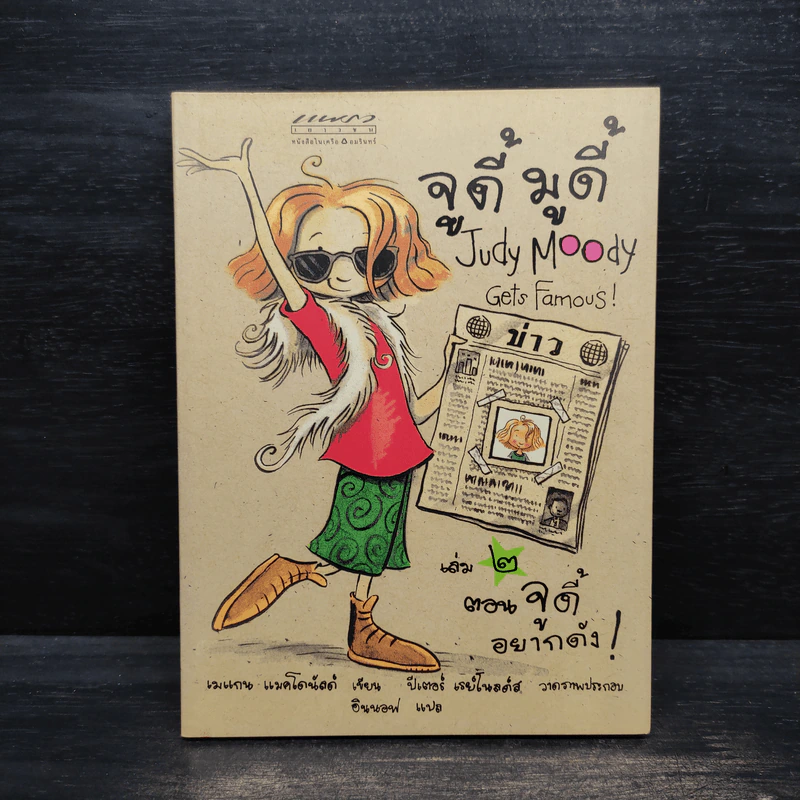 แพรว
เยาวชน
หนังสือในเครือ อมรินทร์
จูดี้ มูดี้
Judy Moody
Gets Famous!
ข่าว
เล่ม ๒
ตอน จูดี้
อยากดัง!
เมแกน แมคโดนัลด์ เขียน ปีเตอร์ เรย์โนลด์ส วาดภาพประกอบ
อินนอฟ แปล